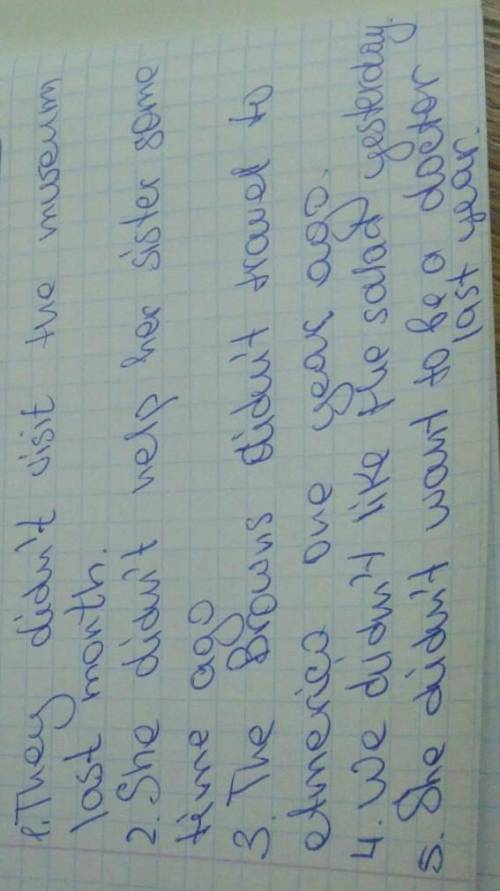 1. They didn't visit the museum
last month.
2. She didn't help her sister some
time ago
3. The Browns didn't travel to
America one year ago.
4. We didn't like the salad yesterday.
5. She didn't want to be a doctor
last year.